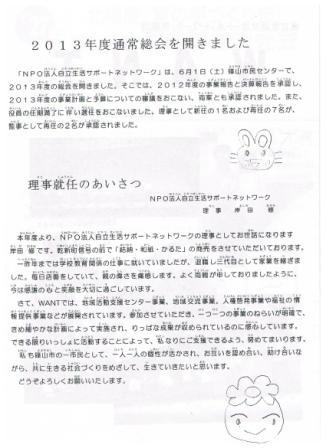 2013年度通常総会を開きました
「NPO法人自立生活サポートネットワーク」は、6月1日（土）篠山市民センターで、
2013年度の総会を開きました。そこでは、2012年度の事業報告と決算報告を承認し、
2013年度の事業計画と予算についての審議をおこない、両案とも承認されました。また、
役員の任期満了に伴い選任をおこないました。理事として新任の1名および再任の7名が、
監事として再任の2名が承認されました。
理事就任のあいさつ
NPO法人自立生活サポートネットワーク
理事 岸田
本年度より、NPO法人自立生活サポートネットワークの理事としてお世話になります
岸田 です。乾新町衣号の前で「結納・和紙・かるた」の商売をさせていただいております。
一昨年までは学校教育関係の仕事に就いていましたが、退職し三代目として家業を継ぎま
した。毎日店番をしていて、親の偉さを痛感します。よく母親が申しておりましたように、
今は感謝の心と笑顔を大切に過ごしています。
さて、WANTでは、地域活動支援センター事業、地域交流事業、人権啓発事業や福祉の情
報提供事業などが展開されています。参加させていただき、一つ一つの事業のねらいが明確で、
きめ細やかな計画によって実施され、りっぱな成果が収められているのに感心しています。
できる限りいっしょに活動することによって、私なりにご支援できるよう、努めてまいります。
私も篠山市の一市民として、一人一人の個性が活かされ、お互いを認め合い、助け合いな
がら、共に生きる社会づくりをめざして、生きていきたいと思います。
どうぞよろしくお願いいたします。